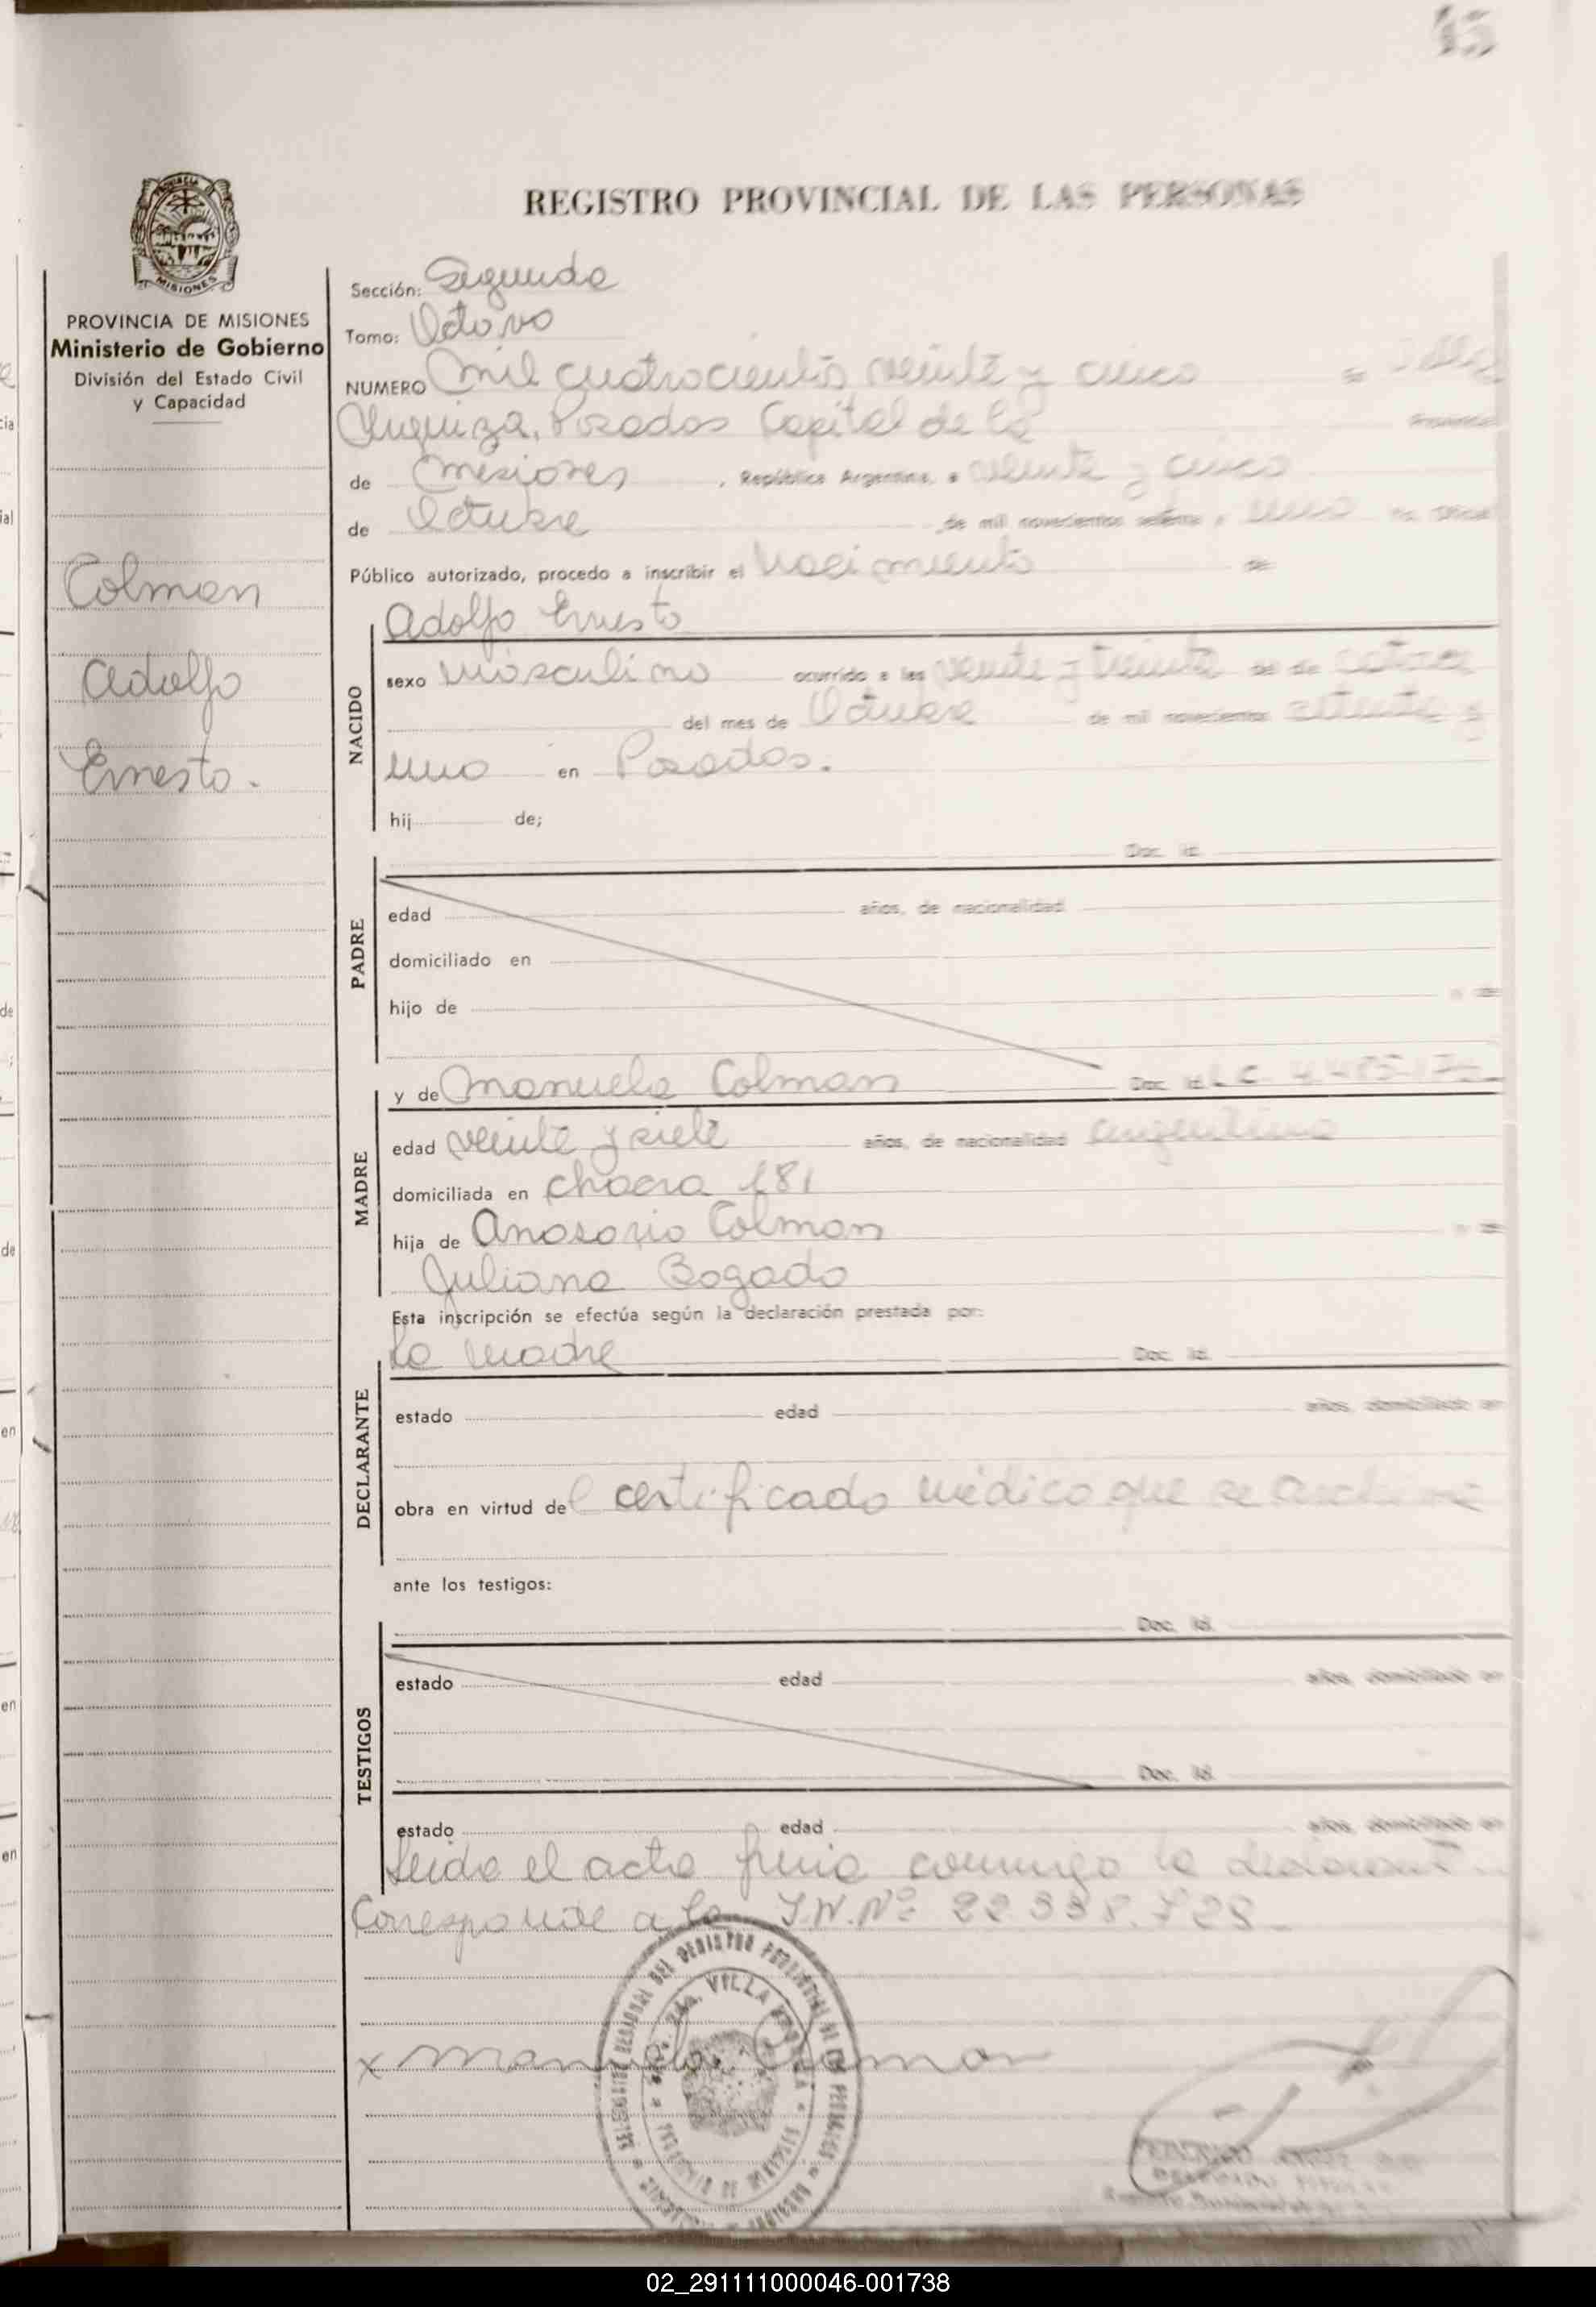 15
REGISTRO PROVINCIAL DE LAS PERSONAS
MISIONES
PROVINCIA DE MISIONES
Ministerio de Gobierno
División del Estado Civil
y Capacidad
Colman
Adolfo
Ernesto.
Sección: Segunda
Tomo: Octavo
NUMERO Mil cuatrocientos veinte y cinco En Villa
Urquiza, Posadas Capital de la Provincia
de Misiones, República Argentina, a veinte y cinco
de Octubre de mil novecientos setenta y uno Yo, Oficial
Público autorizado, procedo a inscribir el Nacimiento de:
NACIDO
Adolfo Ernesto
sexo Masculino ocurrido a las veinte y treinta de
del mes de Octubre de mil novecientos setenta y
uno en Posadas.
hij de;
PADRE
Doc. Id.
edad años, de nacionalidad
domiciliado en
hijo de y de
MADRE
y de Manuela Colman Doc. Id. L.C.
edad veinte y siete años, de nacionalidad argentina
domiciliada en chacra 181
hija de Anasario Colman y de
Juliana Bogado
Esta inscripción se efectúa según la declaración prestada por:
DECLARANTE
La madre Doc. Id.
estado edad años, domiciliado en
obra en virtud del certificado médico que se archiva
ante los testigos:
TESTIGOS
Doc. Id.
estado edad años, domiciliado en
Doc. Id.
estado edad años, domiciliado en
Leida el acta firma conmigo la declarante
Corresponde a la I.N.Nº
VILLA
x Manuela Colman
02_291111000046-001738